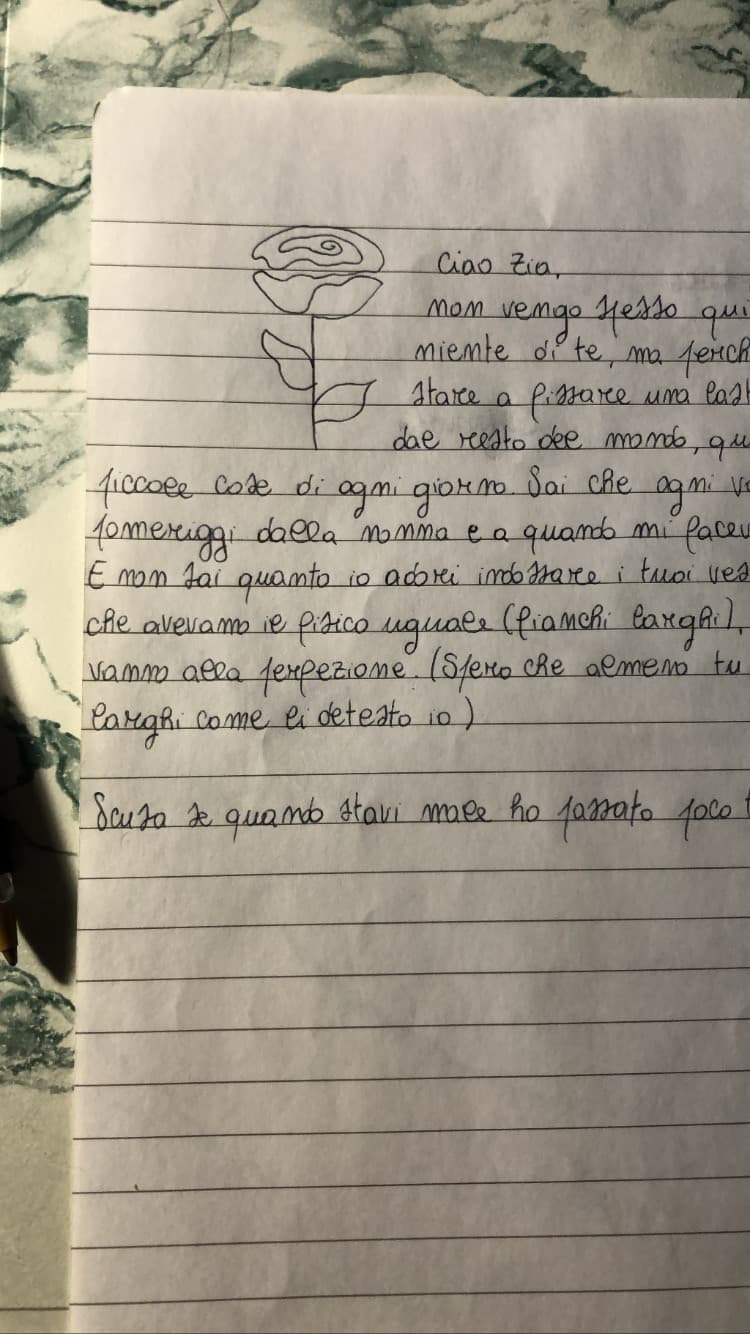 Ciao Zia,
non vengo spesso qui
niente di te, ma perch
stare a fissare una last
dal resto del mondo, qu
piccole cose di ogni giorno. Sai che ogni vo
pomeriggi dalla nonna e a quando mi facev
E non sai quanto io adori indossare i tuoi ves
che avevamo il fisico uguale (fianchi larghi),
vanno alla perfezione. (Spero che almeno tu
larghi come li detesto io)
Scusa se quando stavi male ho passato poco t